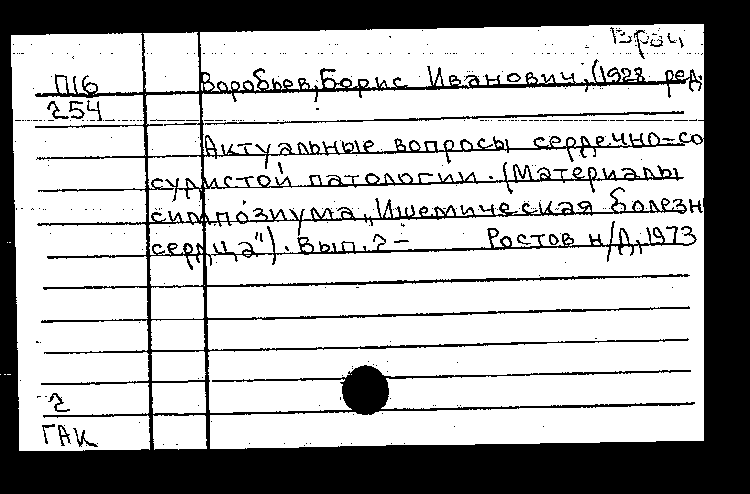 Врач,
П16 Воробьев, Борис Иванович, (1928 ред.
254
Актуальные вопросы сердечно-со
судистой патологии. (Материалы
симпозиума „Ишемическая болезн
сердца"). Вып. 2 - Ростов н/Д, 1973
2
ГАК